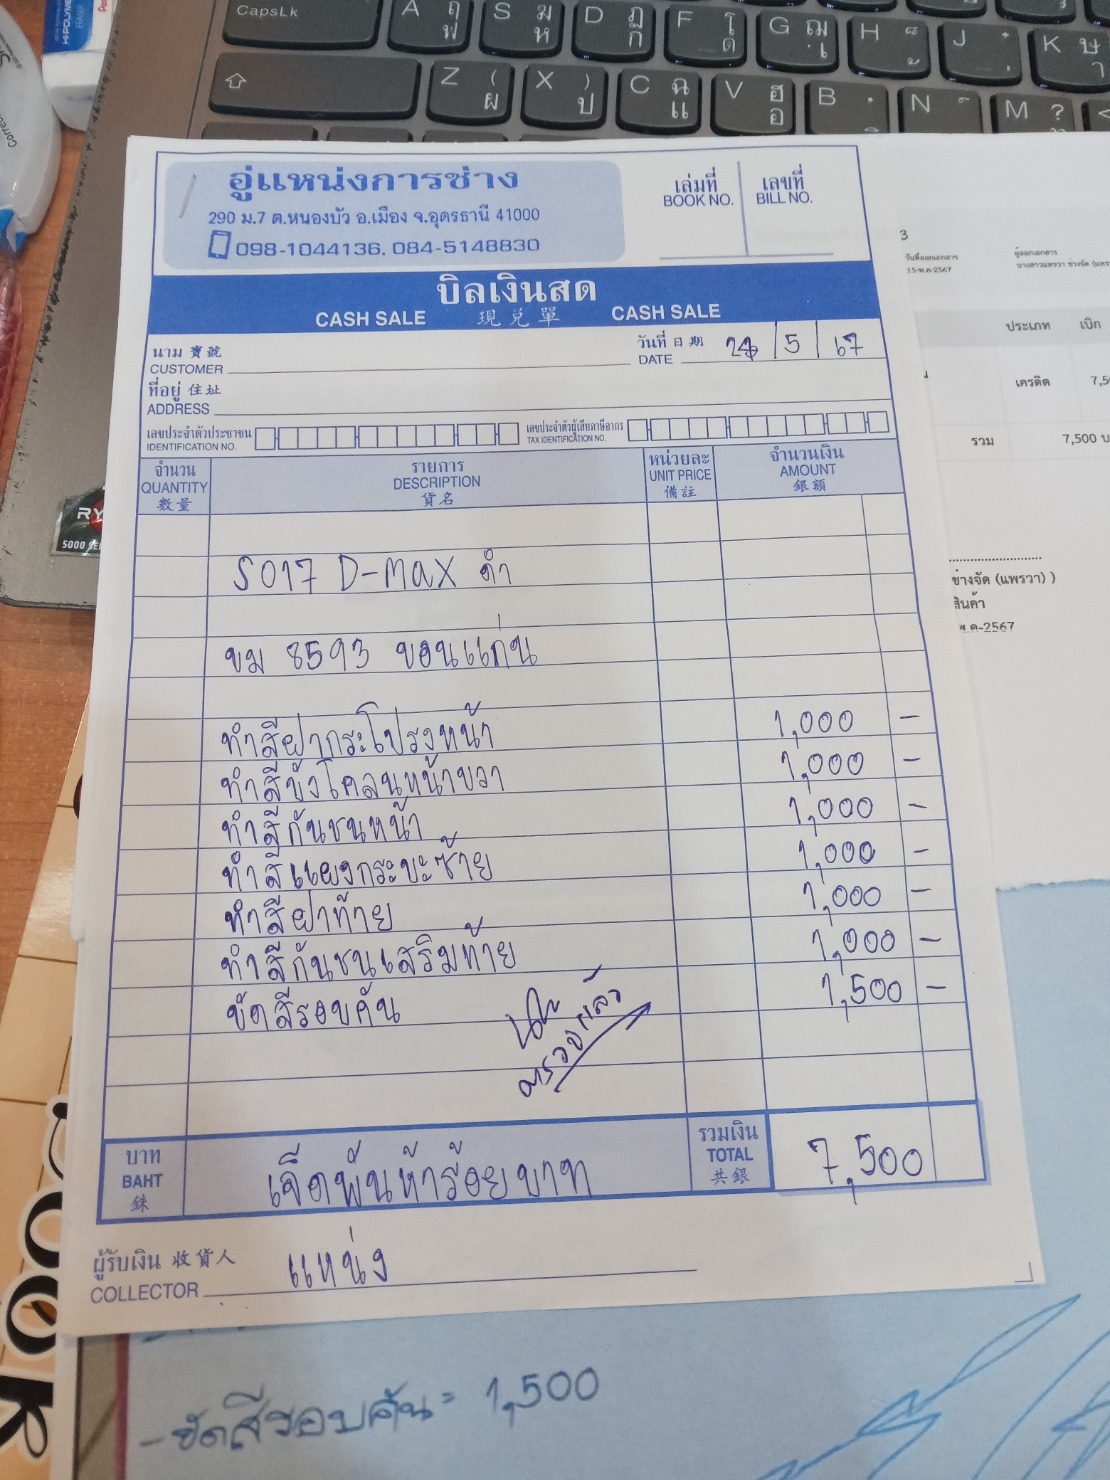 CapsLk
A ฤ ฟ
S ฆ ห
D ฏ ก
F โ ด
G ฌ เ
H ็ ้
J ๋ ่
K ษ า
Z ( ผ
X ) ป
C ฉ แ
V ฮ อ
B
N
M ?
HI-POLYMER
ERASER
อู่แหน่งการช่าง
290 ม.7 ต.หนองบัว อ.เมือง จ.อุดรธานี 41000
098-1044136, 084-5148830
เล่มที่
BOOK NO.
เลขที่
BILL NO.
บิลเงินสด
CASH SALE 現兌單 CASH SALE
นาม 寶號
CUSTOMER
วันที่ 日期
DATE 5 67
ที่อยู่ 住址
ADDRESS
เลขประจำตัวประชาชน
IDENTIFICATION NO.
เลขประจำตัวผู้เสียภาษีอากร
TAX IDENTIFICATION NO.
จำนวน
QUANTITY
數量
รายการ
DESCRIPTION
貨名
หน่วยละ
UNIT PRICE
備註
จำนวนเงิน
AMOUNT
銀額
S017 D-max ดำ
ขม 8593 ขอนแก่น
ทำสีฝากระโปรงหน้า 1,000 -
ทำสีบังโคลนหน้าขวา 1,000 -
ทำสีกันชนหน้า 1,000 -
ทำสีแผงกระบะซ้าย 1,000 -
ทำสีฝาท้าย 1,000 -
ทำสีกันชนเสริมท้าย 1,000 -
ขัดสีรอบคัน 1,500 -
ตรวจแล้ว
บาท
BAHT
銖
เจ็ดพันห้าร้อยบาท
รวมเงิน
TOTAL
共銀
7,500
ผู้รับเงิน 收貨人
COLLECTOR
แหน่ง
3
วันที่ออกเอกสาร
15-พ.ค-2567
ผู้ออกเอกสาร
นางสาวแพรวา ช่างจัด (แพร
ประเภท เบิก
เครดิต 7,5
รวม 7,500 บ
ช่างจัด (แพรวา) )
สินค้า
พ.ค-2567
RY
5000 SE
- ขัดสีรอบคัน = 1,500